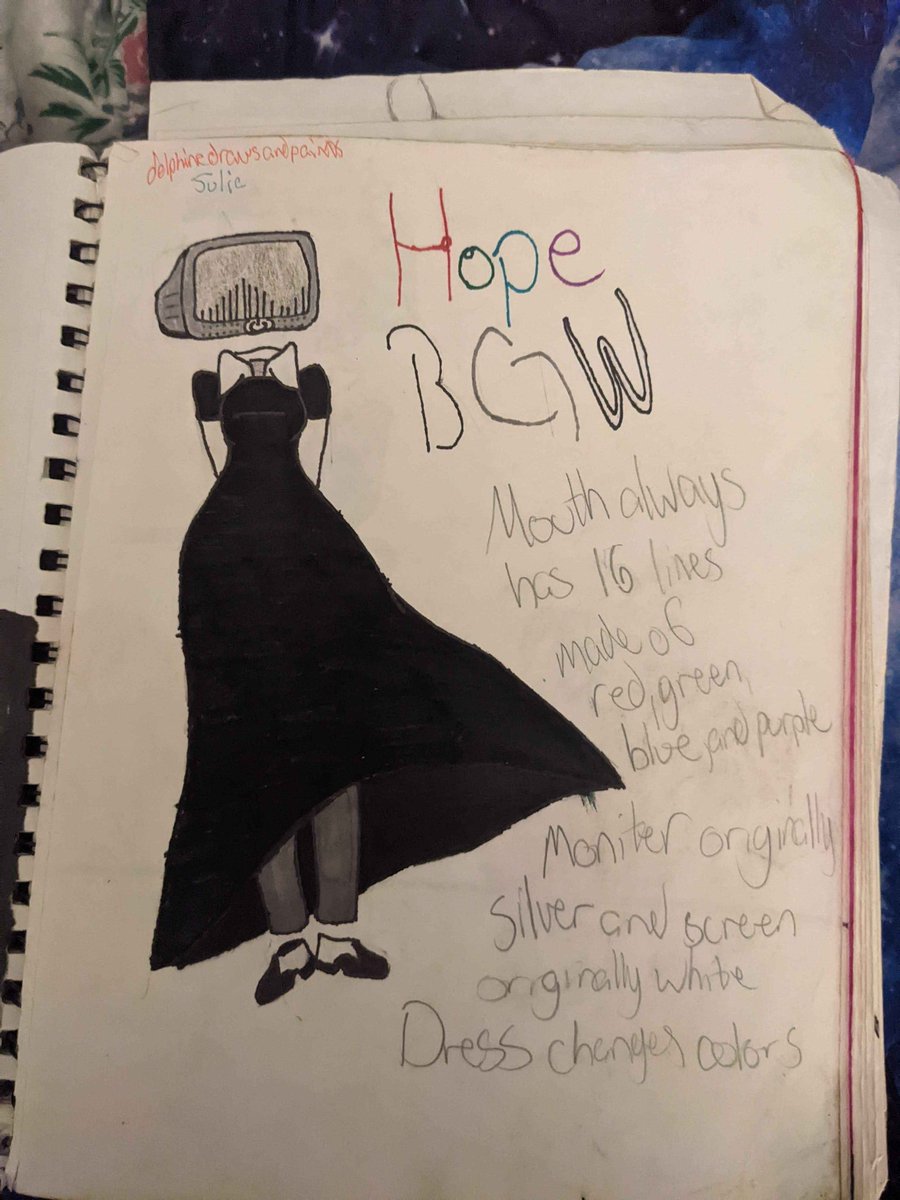 delphinedrawsandpaints
Julie
Hope
BGW
Mouth always
has 16 lines
made of
red, green,
blue, and purple
Moniter originally
silver and screen
originally white
Dress changes colors